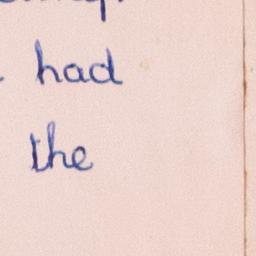 had
the